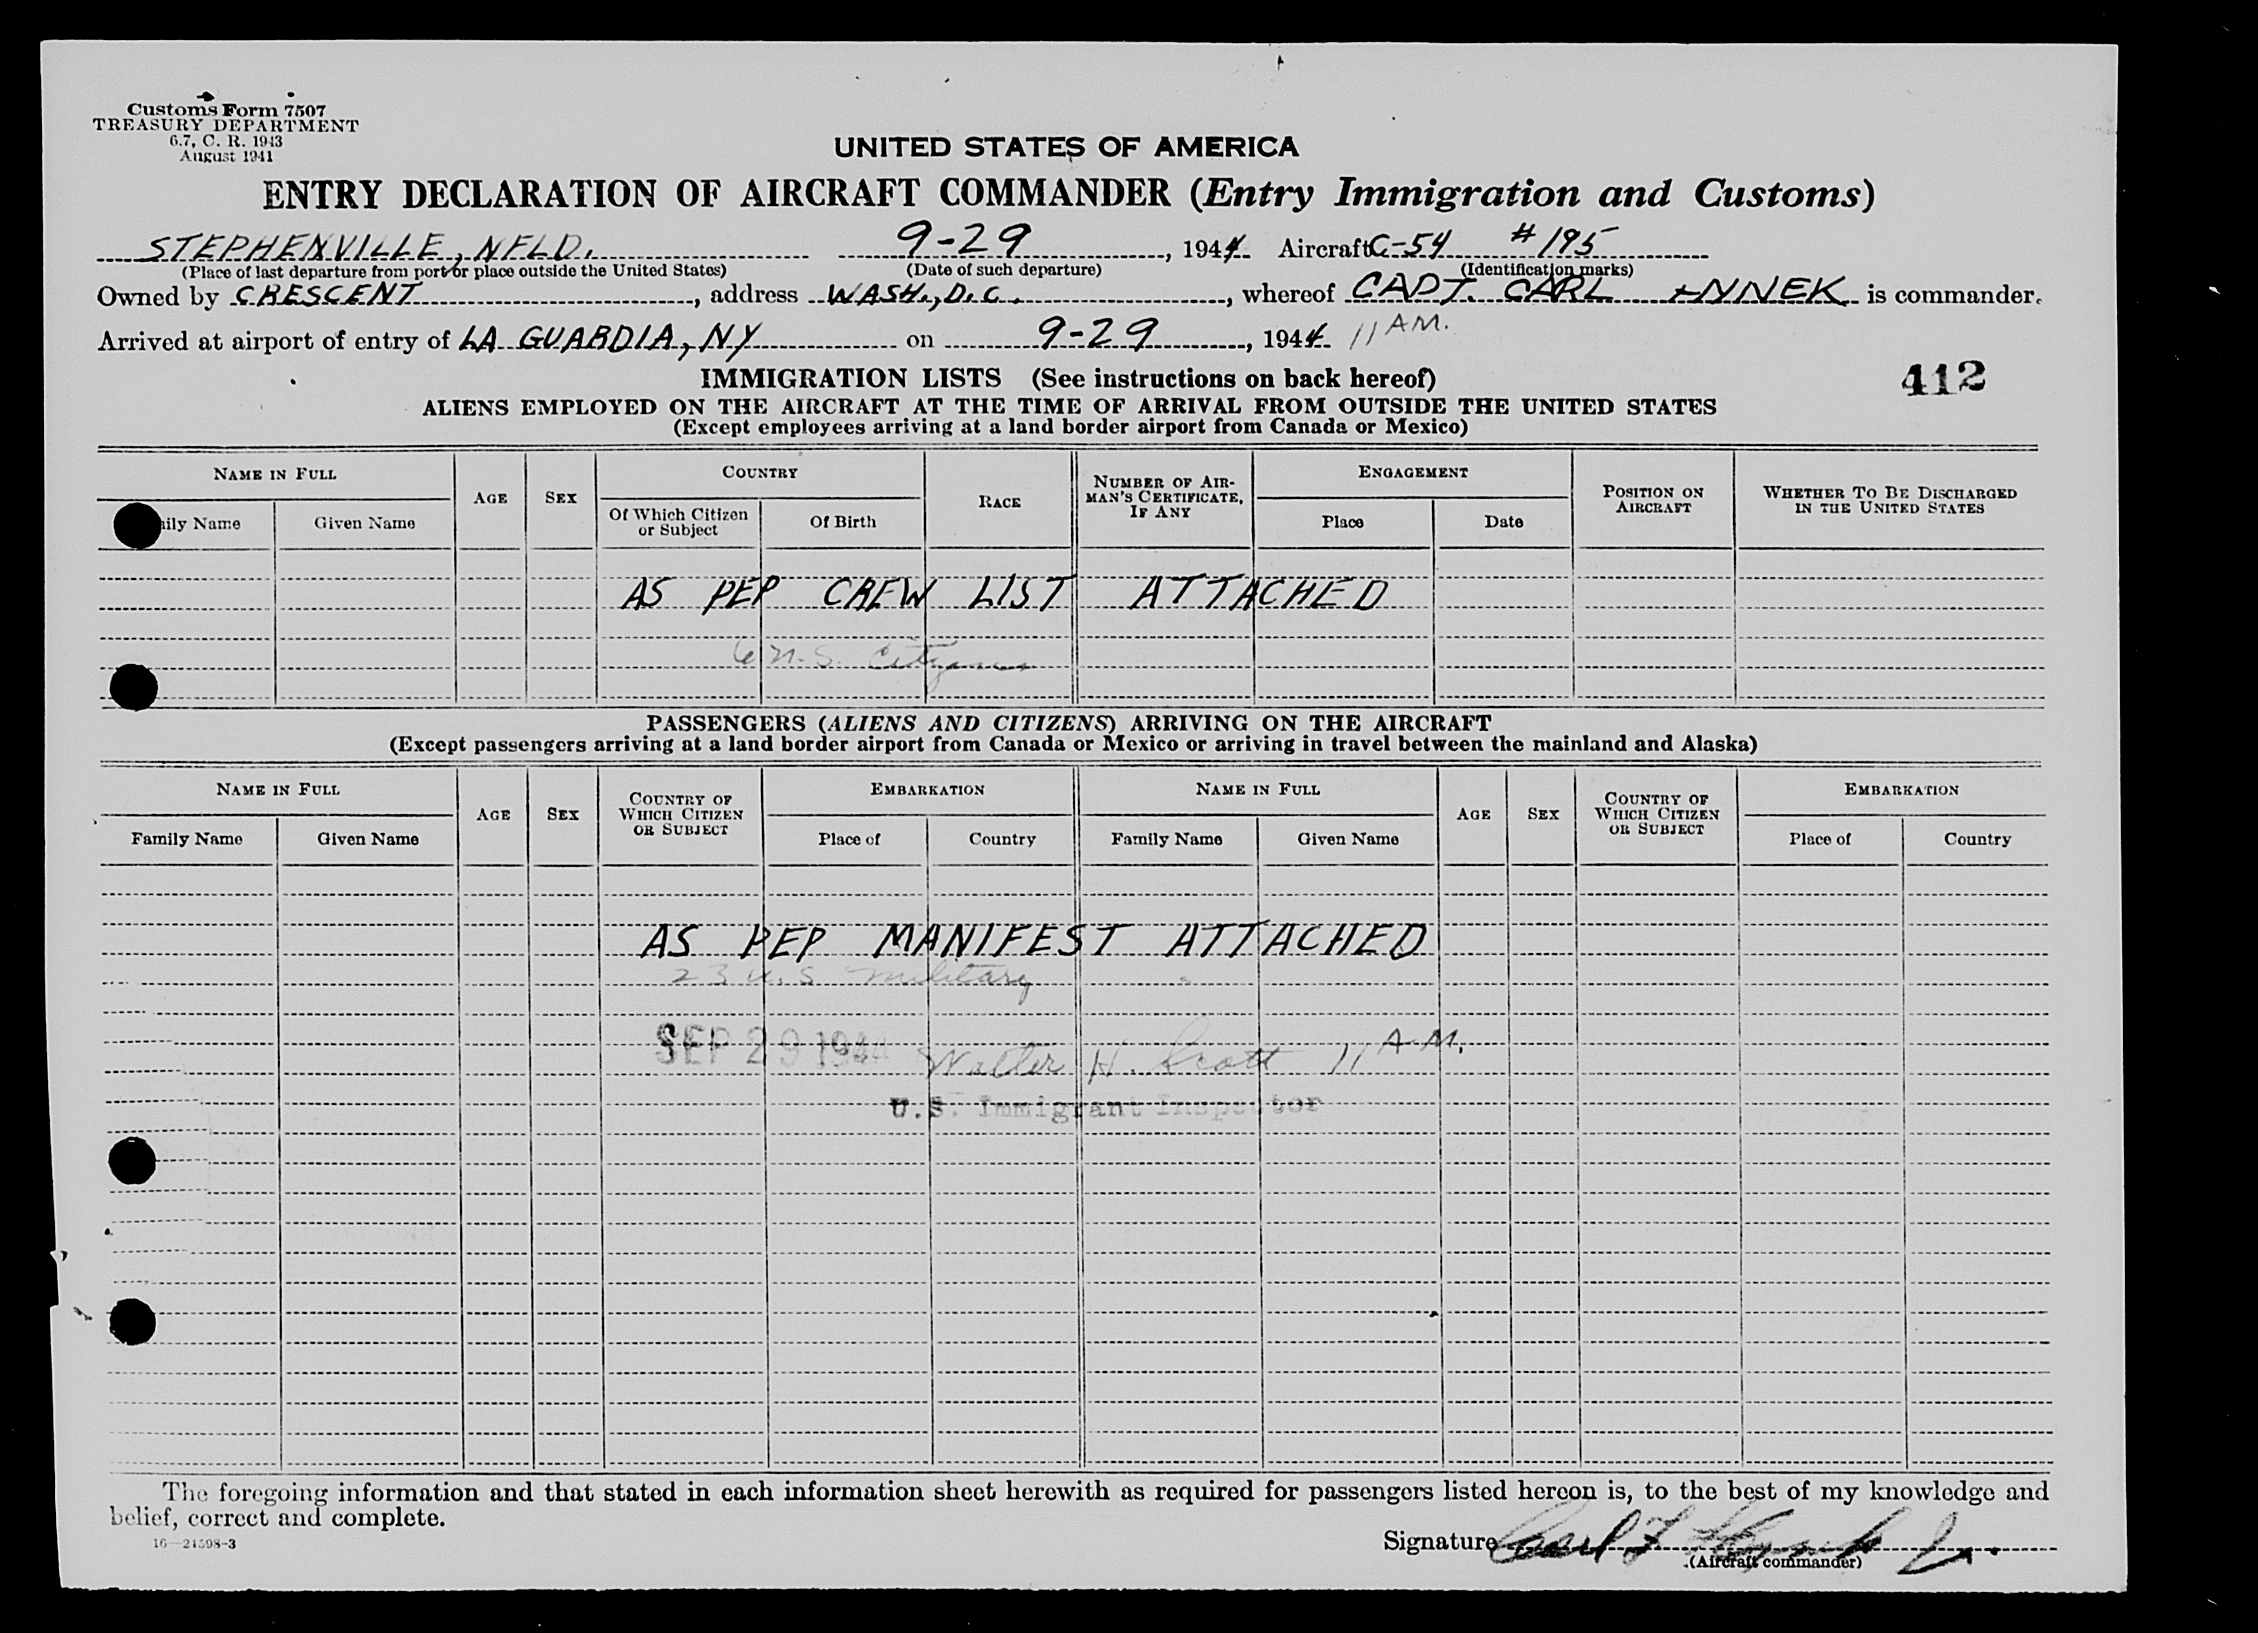 Customs Form 7507
TREASURY DEPARTMENT
6.7, C. R. 1943
August 1941
UNITED STATES OF AMERICA
ENTRY DECLARATION OF AIRCRAFT COMMANDER (Entry Immigration and Customs)
STEPHENVILLE, NFLD. 9-29, 1944 Aircraft C-54 #195
(Place of last departure from port or place outside the United States) (Date of such departure) (Identification marks)
Owned by CRESCENT, address WASH., D.C., whereof CAPT. CARL is commander.
Arrived at airport of entry of LA GUARDIA, NY on 9-29, 1944 11 AM.
IMMIGRATION LISTS (See instructions on back hereof)
412
ALIENS EMPLOYED ON THE AIRCRAFT AT THE TIME OF ARRIVAL FROM OUTSIDE THE UNITED STATES
(Except employees arriving at a land border airport from Canada or Mexico)
NAME IN FULL AGE SEX COUNTRY RACE NUMBER OF AIRMAN'S CERTIFICATE, IF ANY ENGAGEMENT POSITION ON AIRCRAFT WHETHER TO BE DISCHARGED IN THE UNITED STATES
ily Name Given Name Of Which Citizen or Subject Of Birth Place Date
AS PER CREW LIST ATTACHED
6 U.S. Citizens
PASSENGERS (ALIENS AND CITIZENS) ARRIVING ON THE AIRCRAFT
(Except passengers arriving at a land border airport from Canada or Mexico or arriving in travel between the mainland and Alaska)
NAME IN FULL AGE SEX COUNTRY OF WHICH CITIZEN OR SUBJECT EMBARKATION NAME IN FULL AGE SEX COUNTRY OF WHICH CITIZEN OR SUBJECT EMBARKATION
Family Name Given Name Place of Country Family Name Given Name Place of Country
AS PER MANIFEST ATTACHED
23 U.S. Military
SEP 29 1944 Walter H. Scott 11 A.M.
U.S. Immigrant Inspector
The foregoing information and that stated in each information sheet herewith as required for passengers listed hereon is, to the best of my knowledge and
belief, correct and complete.
16—21598-3
Signature Carl F. Jr.
(Aircraft commander)